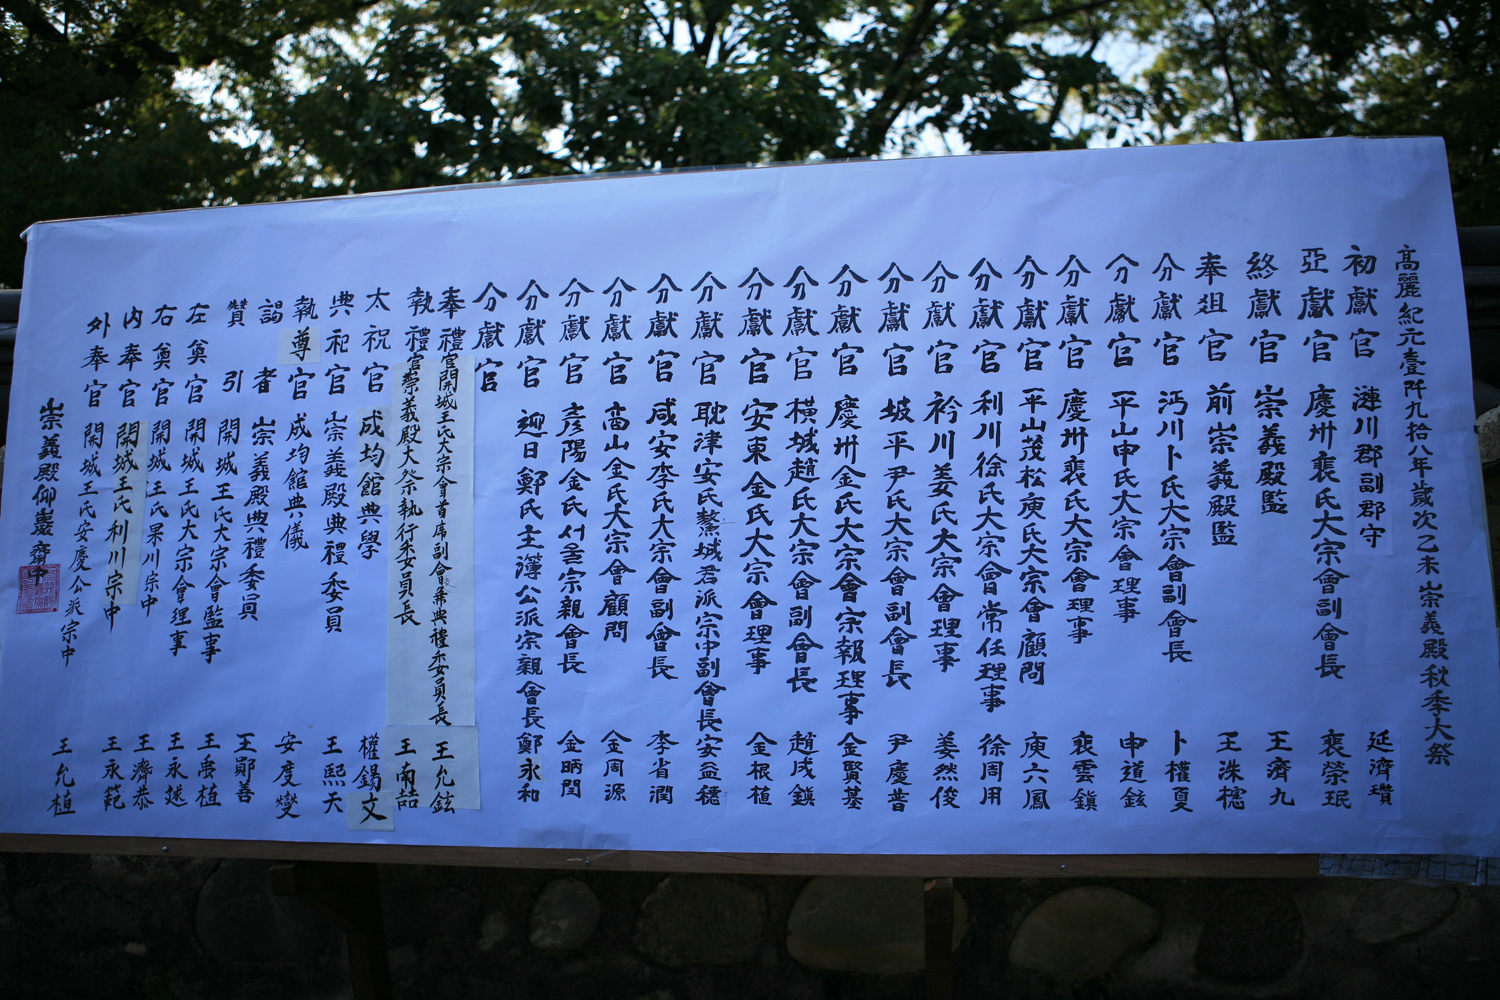 高麗紀元壹阡九拾八年歲次乙未崇義殿秋季大祭
初獻官 漣川郡副郡守 延濟瓚
亞獻官 慶州裵氏大宗會副會長 裵榮珉
終獻官 崇義殿監 王濟九
奉俎官 前崇義殿監 王洙
分獻官 沔川卜氏大宗會副會長 卜權夏
分獻官 平山申氏大宗會理事 申道鉉
分獻官 慶州裵氏大宗會理事 裵雲鎭
分獻官 平山茂松庾氏大宗會顧問 庾六鳳
分獻官 利川徐氏大宗會常任理事 徐周用
分獻官 衿川姜氏大宗會理事 姜然俊
分獻官 坡平尹氏大宗會副會長 尹慶普
分獻官 慶州金氏大宗會宗報理事 金賢基
分獻官 橫城趙氏大宗會副會長 趙成鎭
分獻官 安東金氏大宗會理事 金根植
分獻官 耽津安氏鰲城君派宗中副會長 安益
分獻官 咸安李氏大宗會副會長 李省潤
分獻官 高山金氏大宗會顧問 金周源
分獻官 彦陽金氏서울宗親會長 金昞閏
分獻官 迎日鄭氏主簿公派宗親會長 鄭永和
分獻官
奉禮官 開城王氏大宗會首席副會長兼典禮委員長 王允鉉
執禮官 崇義殿大祭執行委員長 王南喆
太祝官 成均館典學 權錫文
典祀官 崇義殿典禮委員 王熙天
執尊官 成均館典儀 安度燮
謁者 崇義殿典禮委員 王鄖善
贊引 開城王氏大宗會監事 王禹植
左奠官 開城王氏大宗會理事 王永述
右奠官 開城王氏果川宗中 王濟恭
內奉官 開城王氏利川宗中 王永範
外奉官 開城王氏安慶公派宗中 王允植
崇義殿仰巖齋中